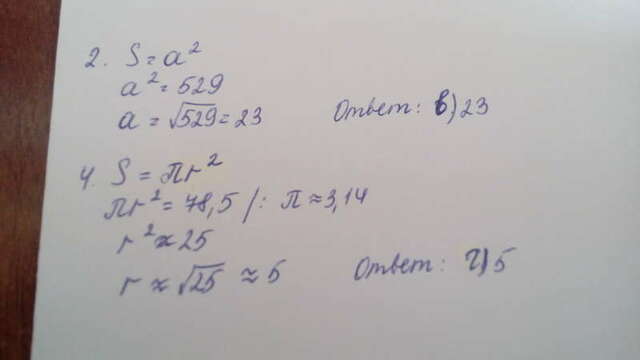 2. S = a²
a² = 529
a = √529 = 23 Ответ: в) 23
4. S = πr²
πr² = 78,5 /: π ≈ 3,14
r² ≈ 25
r ≈ √25 ≈ 5 Ответ: г) 5